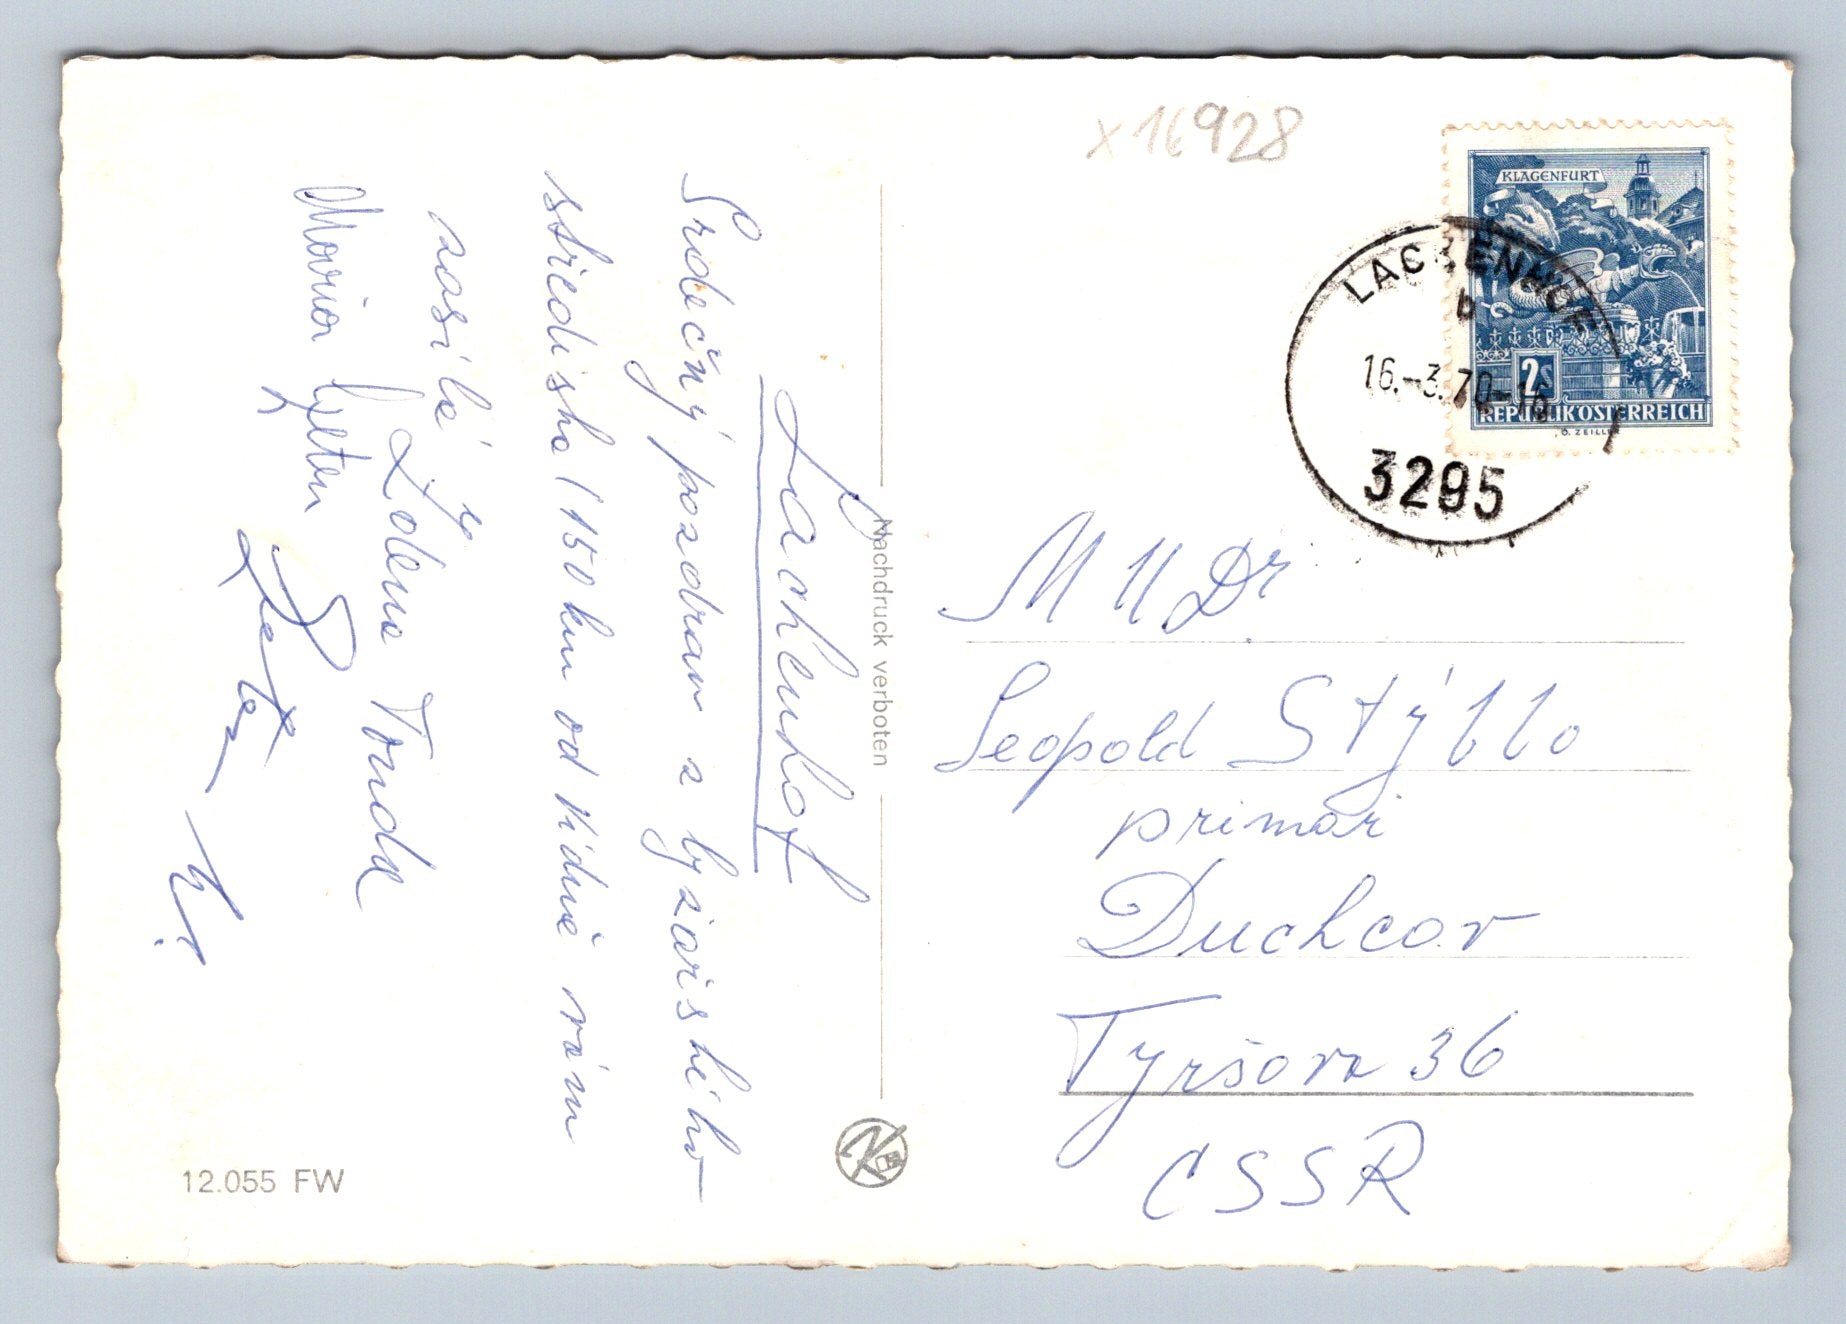 x16928
KLAGENFURT
2S
REPUBLIK OSTERREICH
O. ZEILLER
LACKENHOF
b
16.-3.70-16
3295
Lackenhof
Srdečný pozdrav z lyžařského
střediska (150 km od Vídně vám
zasílá
Zdena Tonda
Maria
Nachdruck verboten
MUDr
Leopold Stýblo
primář
Duchcov
Tyršova 36
CSSR
12.055 FW